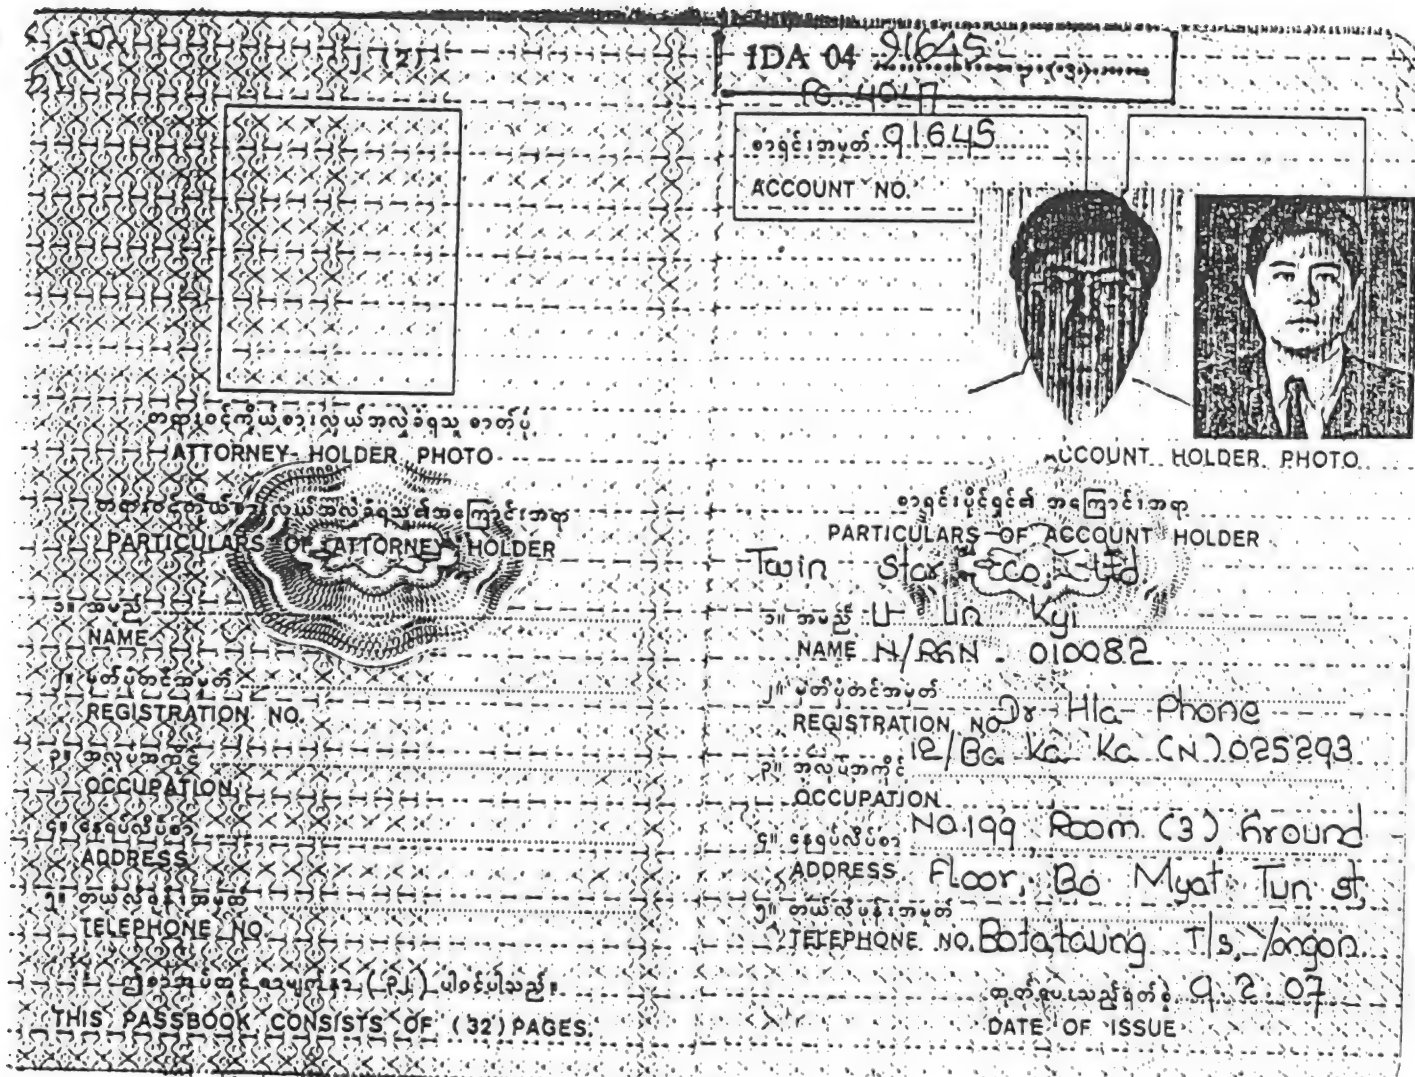 5/4/02
၂ (2)
တရားဝင်ကိုယ်စားလှယ်အလွှဲခံရသူ ဓာတ်ပုံ
ATTORNEY HOLDER PHOTO
တရားဝင်ကိုယ်စားလှယ်အလွှဲခံရသူ၏အကြောင်းအရာ
PARTICULARS OF ATTORNEY HOLDER
၁။ အမည်
NAME
၂။ မှတ်ပုံတင်အမှတ်
REGISTRATION NO.
၃။ အလုပ်အကိုင်
OCCUPATION
၄။ နေရပ်လိပ်စာ
ADDRESS
၅။ တယ်လီဖုန်းအမှတ်
TELEPHONE NO.
ဤစာအုပ်တွင် စာမျက်နှာ (၃၂) ပါဝင်ပါသည်။
THIS PASSBOOK CONSISTS OF (32) PAGES.
IDA 04 91645
စာရင်းအမှတ် 91645
ACCOUNT NO.
ACCOUNT HOLDER PHOTO
စာရင်းပိုင်ရှင်၏ အကြောင်းအရာ
PARTICULARS OF ACCOUNT HOLDER
Twin Star Co., Ltd
၁။ အမည် U Lin Kyi
NAME N/RGN - 010082
၂။ မှတ်ပုံတင်အမှတ်
REGISTRATION NO. Dr Hla Phone
12/Ba Ka Ka (N) 025293
၃။ အလုပ်အကိုင်
OCCUPATION
၄။ နေရပ်လိပ်စာ No.199, Room (3), Ground
ADDRESS Floor, Bo Myat Tun st,
၅။ တယ်လီဖုန်းအမှတ်
TELEPHONE NO. Botataung T/s, Yangon
ထုတ်ပေးသည့်ရက်စွဲ 9.2.07
DATE OF ISSUE